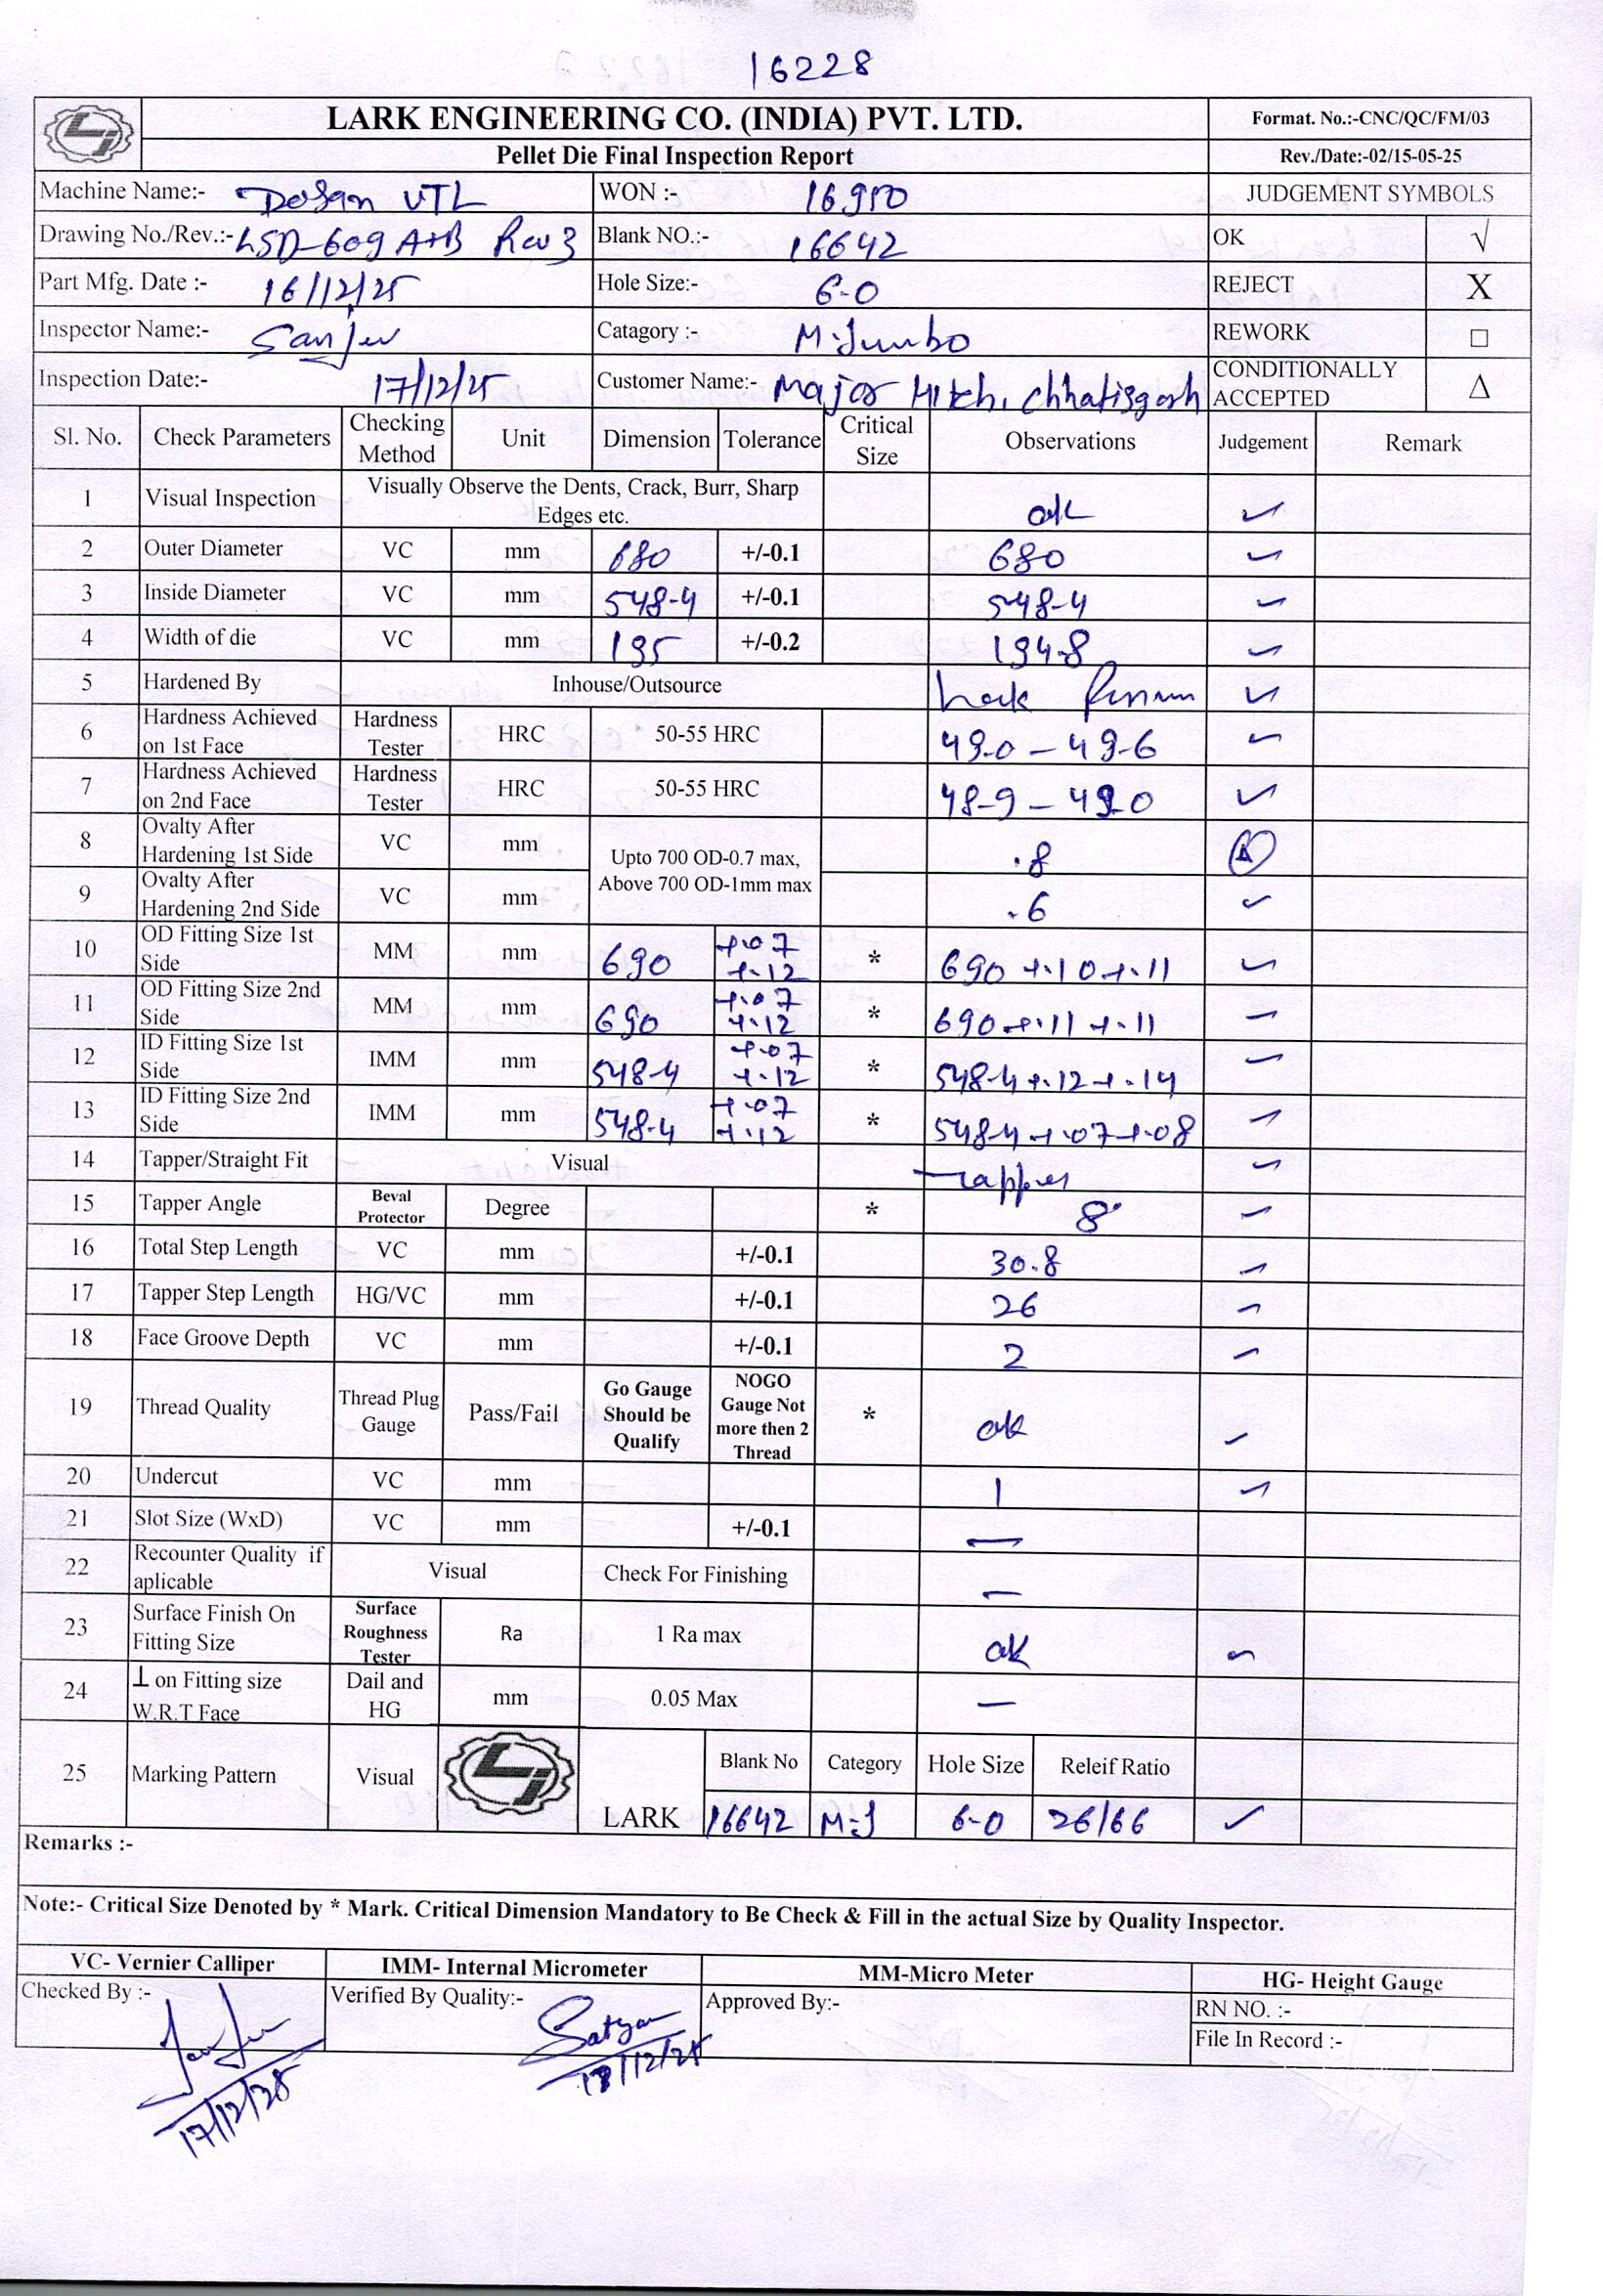 16228
LARK ENGINEERING CO. (INDIA) PVT. LTD. Format. No.:-CNC/QC/FM/03
Pellet Die Final Inspection Report Rev./Date:-02/15-05-25
Machine Name:- Dosan VTL WON :- 16950 JUDGEMENT SYMBOLS
Drawing No./Rev.:- LSD-609 A+B Rev 3 Blank NO.:- 16642 OK √
Part Mfg. Date :- 16/12/25 Hole Size:- 6-0 REJECT X
Inspector Name:- Sanjev Catagory :- M-Jumbo REWORK □
Inspection Date:- 17/12/25 Customer Name:- Major Hitch, Chhatisgarh CONDITIONALLY ACCEPTED Δ
Sl. No. Check Parameters Checking Method Unit Dimension Tolerance Critical Size Observations Judgement Remark
1 Visual Inspection Visually Observe the Dents, Crack, Burr, Sharp Edges etc. ok ✓
2 Outer Diameter VC mm 680 +/-0.1 680 ✓
3 Inside Diameter VC mm 548-4 +/-0.1 548-4 ✓
4 Width of die VC mm 195 +/-0.2 194.8 ✓
5 Hardened By Inhouse/Outsource ✓
6 Hardness Achieved on 1st Face Hardness Tester HRC 50-55 HRC 49.0 - 49-6 ✓
7 Hardness Achieved on 2nd Face Hardness Tester HRC 50-55 HRC 48-9 - 49.0 ✓
8 Ovalty After Hardening 1st Side VC mm Upto 700 OD-0.7 max, Above 700 OD-1mm max .8 Δ
9 Ovalty After Hardening 2nd Side VC mm .6 ✓
10 OD Fitting Size 1st Side MM mm 690 +.07 +.12 * 690 +.10 +.11 ✓
11 OD Fitting Size 2nd Side MM mm 690 +.07 +.12 * 690 +.11 +.11 ✓
12 ID Fitting Size 1st Side IMM mm 548-4 +.07 +.12 * 548-4 +.12 +.14 ✓
13 ID Fitting Size 2nd Side IMM mm 548-4 +.07 +.12 * 548-4 +.07 +.08 ✓
14 Tapper/Straight Fit Visual Tapper ✓
15 Tapper Angle Beval Protector Degree * 8° ✓
16 Total Step Length VC mm +/-0.1 30.8 ✓
17 Tapper Step Length HG/VC mm +/-0.1 26 ✓
18 Face Groove Depth VC mm +/-0.1 2 ✓
19 Thread Quality Thread Plug Gauge Pass/Fail Go Gauge Should be Qualify NOGO Gauge Not more then 2 Thread * ok ✓
20 Undercut VC mm 1 ✓
21 Slot Size (WxD) VC mm +/-0.1 —
22 Recounter Quality if aplicable Visual Check For Finishing —
23 Surface Finish On Fitting Size Surface Roughness Tester Ra 1 Ra max ok ✓
24 ⊥ on Fitting size W.R.T Face Dail and HG mm 0.05 Max —
25 Marking Pattern Visual LARK Blank No Category Hole Size Releif Ratio
16642 M-J 6-0 26/66 ✓
Remarks :-
Note:- Critical Size Denoted by * Mark. Critical Dimension Mandatory to Be Check & Fill in the actual Size by Quality Inspector.
VC- Vernier Calliper IMM- Internal Micrometer MM-Micro Meter HG- Height Gauge
Checked By :- Sanjev Verified By Quality:- Satyam Approved By:- RN NO. :-
File In Record :-
17/12/25 18/12/25